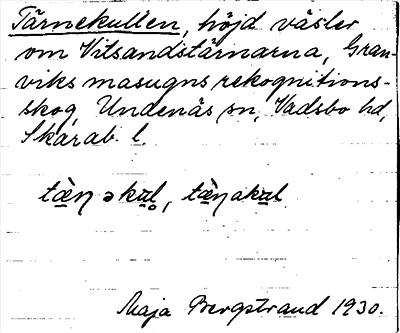 Tärnekullen, höjd väster
om Vitsandstärnarna, Gran-
viks masugns rekognitions-
skog, Undenäs sn, Vadsbo hd,
Skarab. l.
tæ̀ŋəkul, tæ̀ŋakul
Maja Bergstrand 1930.